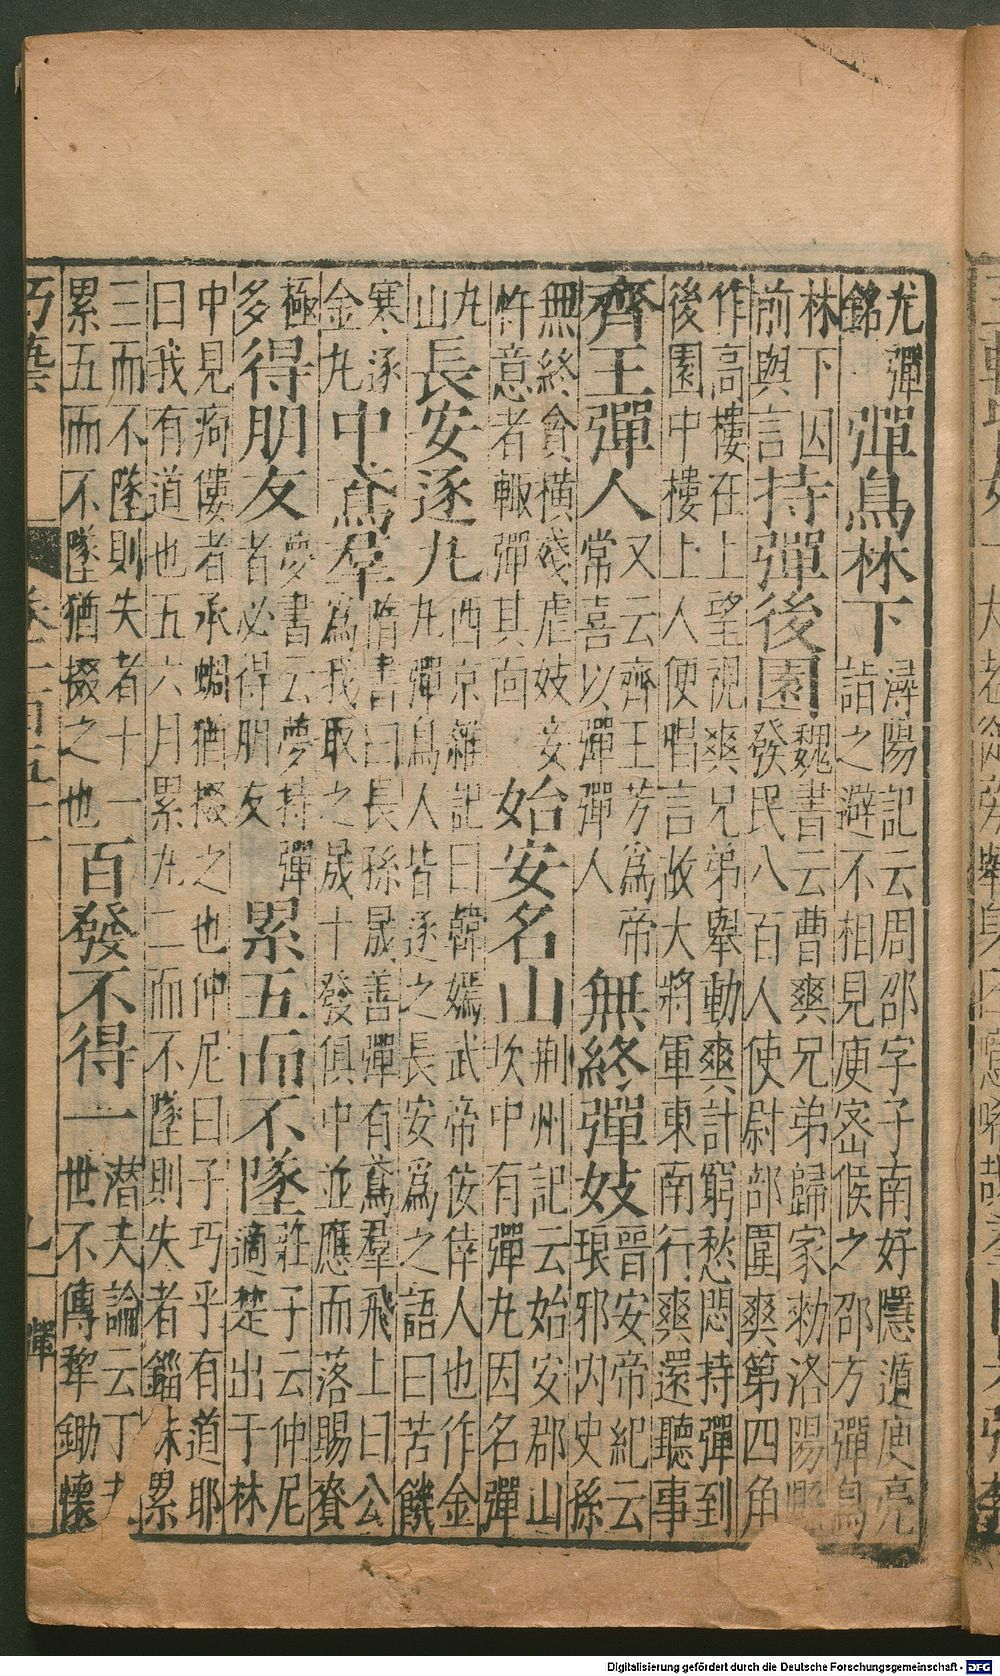 尤彈
銘
彈鳥林下
潯陽記云周邵字子南好隱遁庾亮
詣之避不相見庾密候之邵方彈鳥
林下因
前與言
持彈後園
魏書云曹爽兄弟歸家勑洛陽縣
發民八百人使尉部圍爽第四角
作高樓在上望視爽兄弟舉動爽計窮愁悶持彈到
後園中樓上人便唱言故大將軍東南行爽還聽事
齊王彈人
又云齊王芳爲帝
常喜以彈彈人
無終彈妓
晉安帝紀云
琅邪內史孫
無終貪橫殘虐妓妾
忤意者輙彈其面
始安名山
荆州記云始安郡山
坎中有彈丸因名彈
丸
山
長安逐丸
西京雜記曰韓嫣武帝佞倖人也作金
丸彈鳥人皆逐之長安爲之語曰苦饑
寒逐
金丸
中鳶羣
隋書曰長孫晟善彈有鳶羣飛上曰公
爲我取之晟十發俱中並應而落賜賚
極
多
得朋友
夢書云夢持彈
者必得朋友
累五而不墜
莊子云仲尼
適楚出于林
中見痀僂者承蜩猶掇之也仲尼曰子巧乎有道耶
曰我有道也五六月累丸二而不墜則失者錙銖累
三而不墜則失者十一
累五而不墜猶掇之也
百發不得一
潜夫論云丁夫
世不傳犂鋤懷
巧藝
卷一百五十一
九
彈
Digitalisierung gefördert durch die Deutsche Forschungsgemeinschaft - DFG